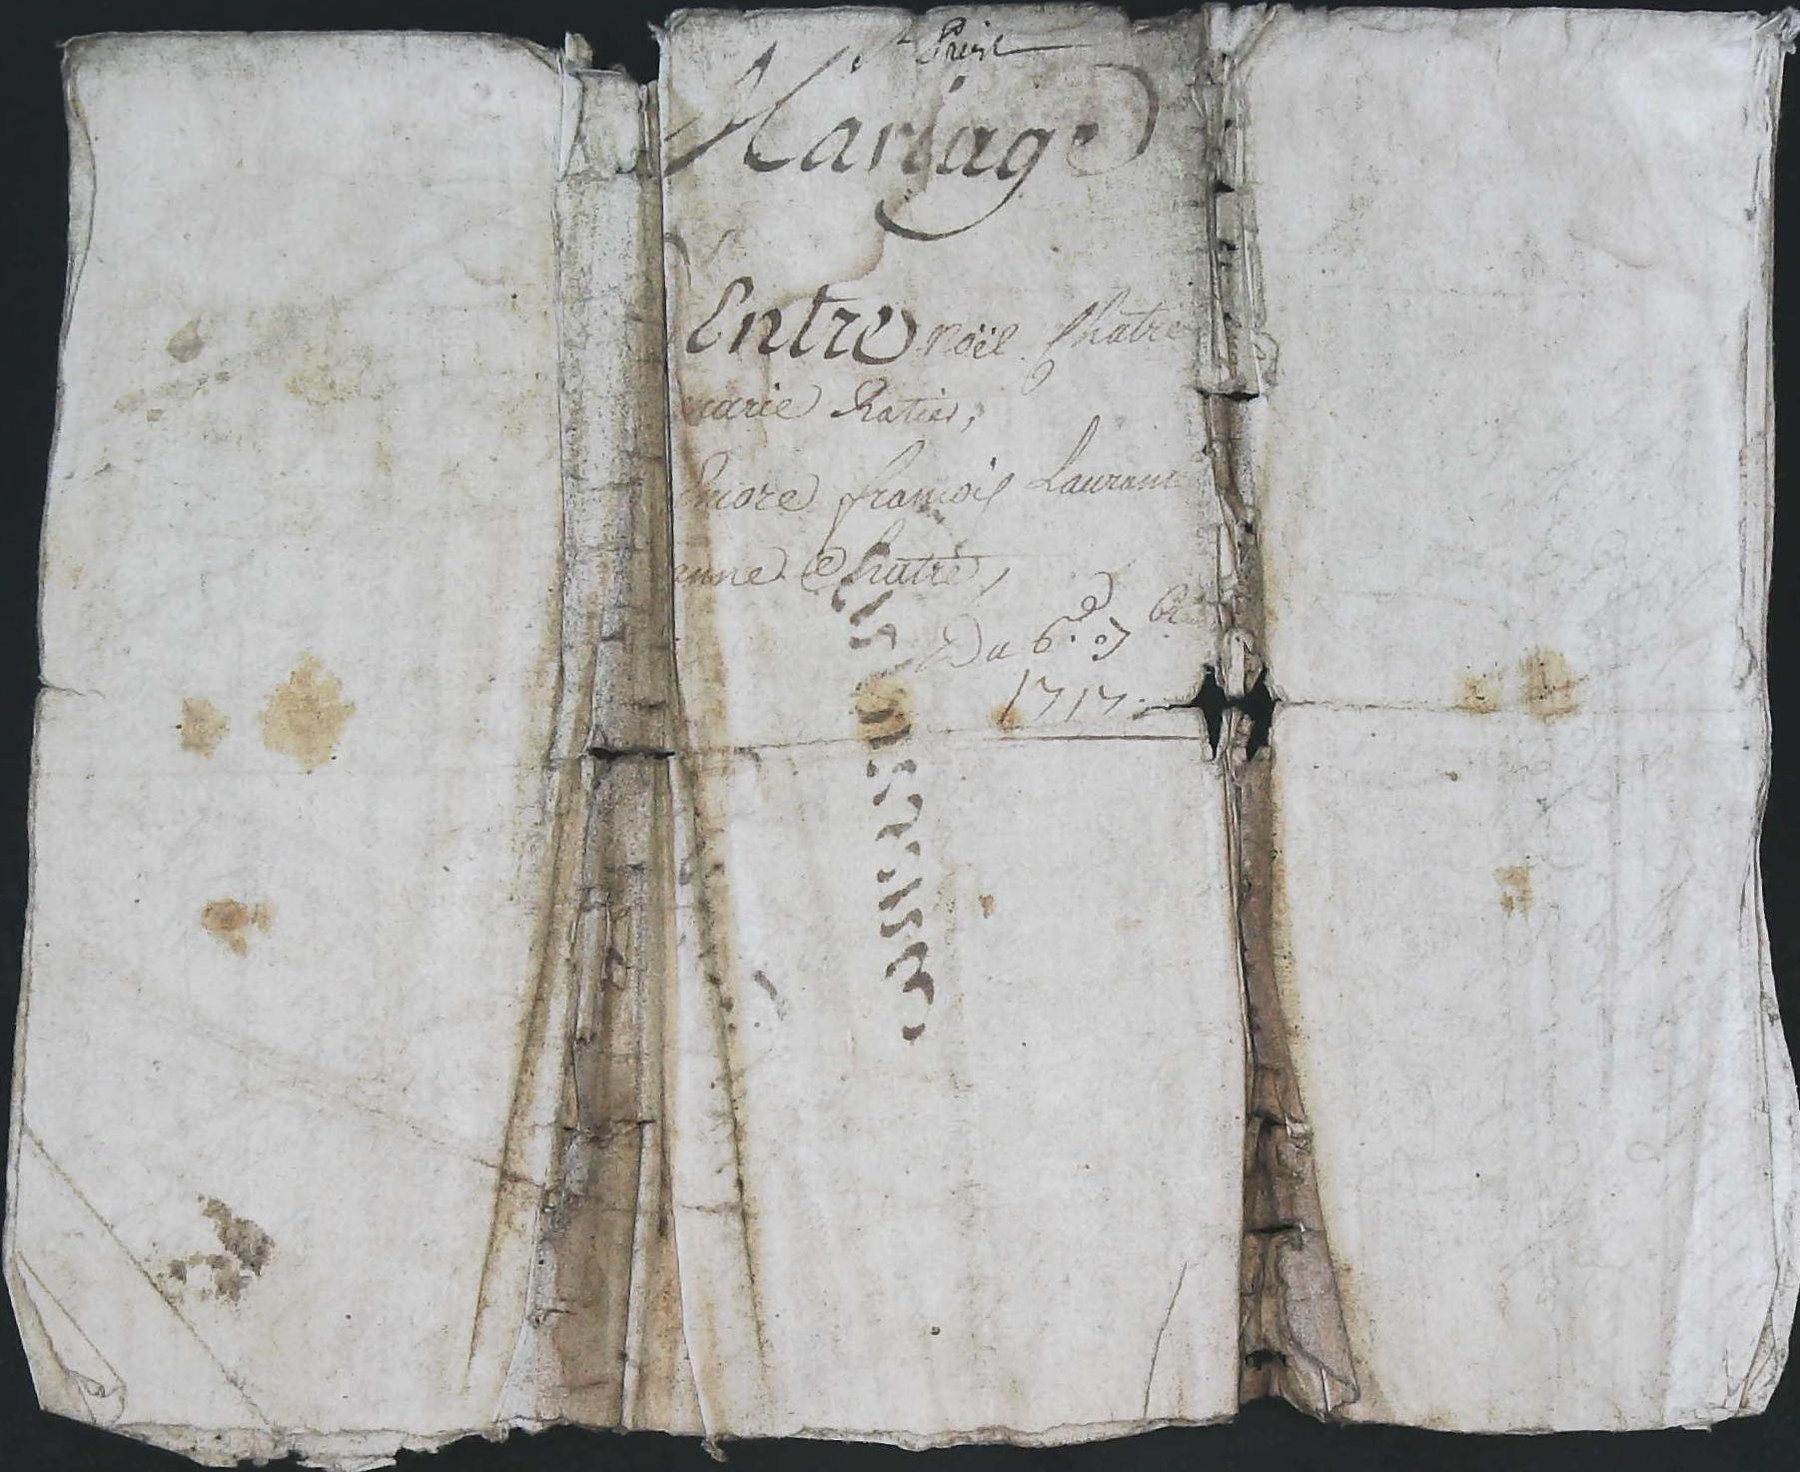 St Priest
Mariage
Entre noël Chatre
marie Ratier,
Encore francois Laurant
jeanne Chatre,
Du 6.e 7bre
1717.